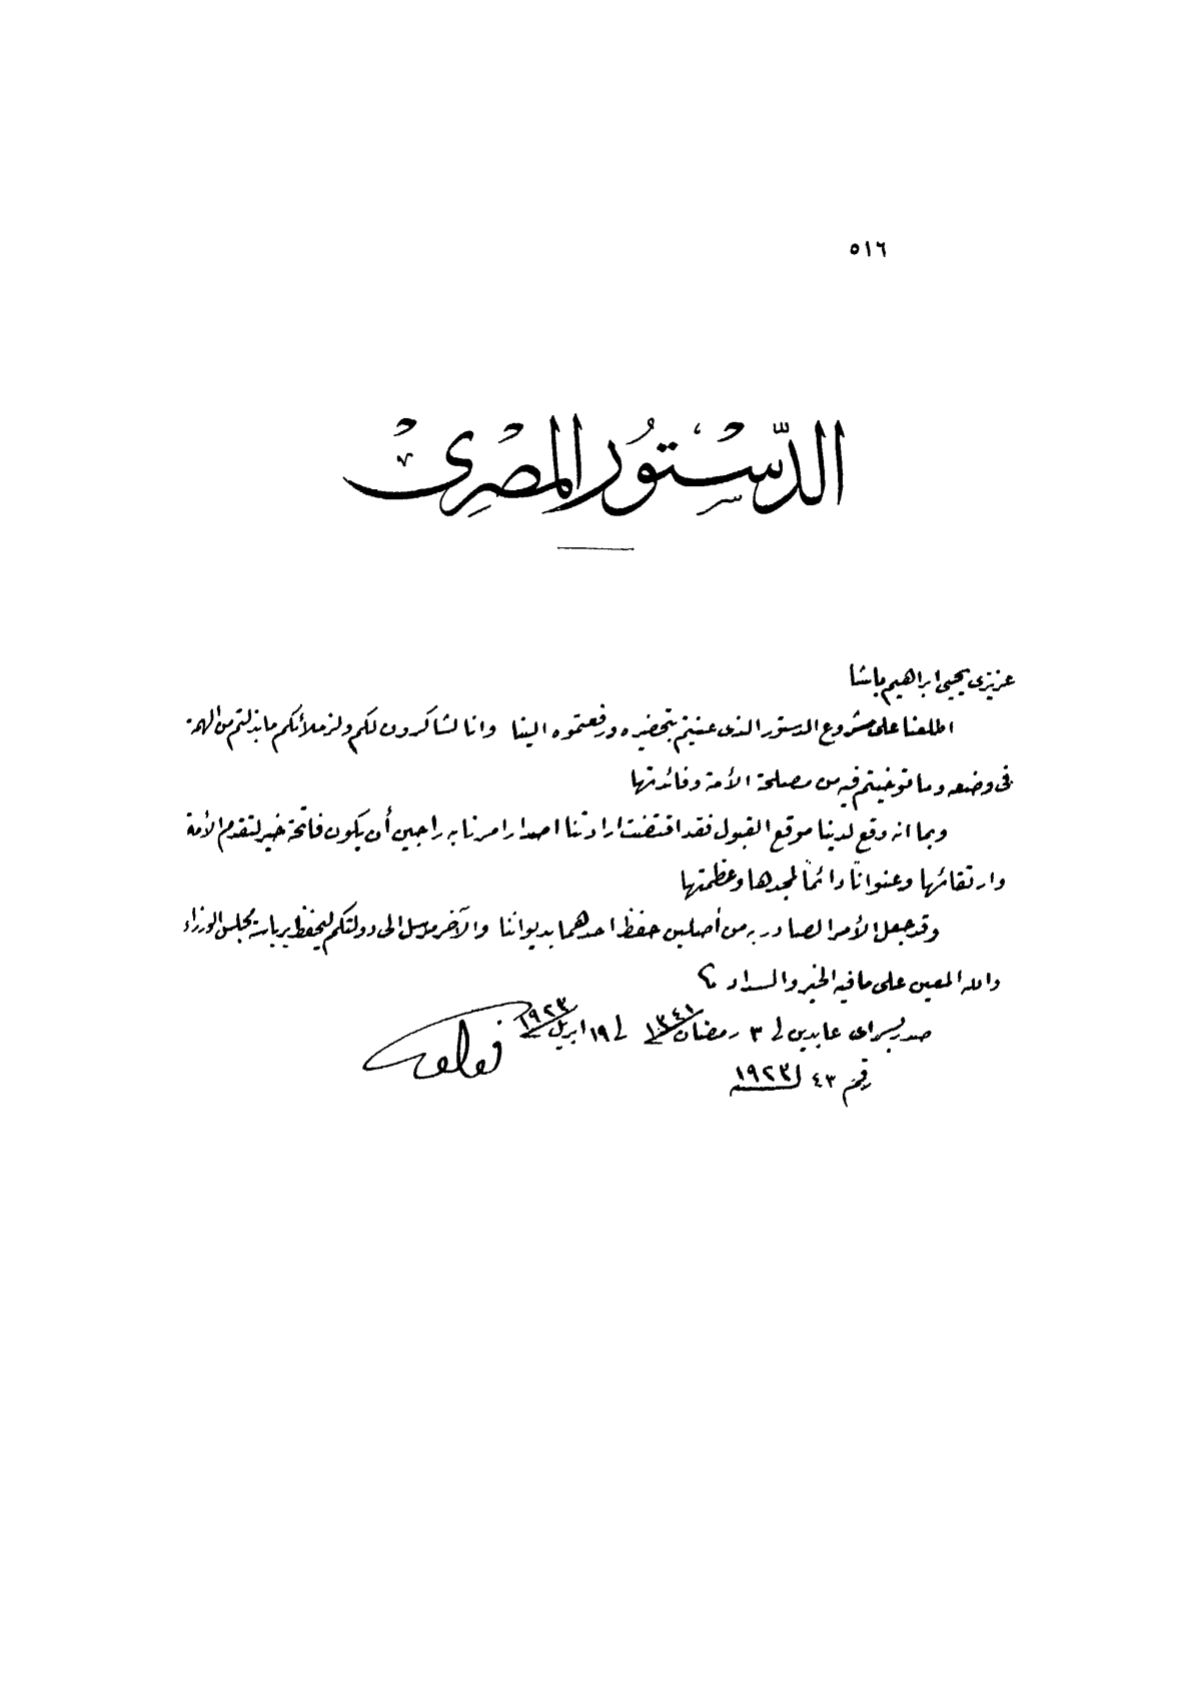 ٥١٦
الدّسْتُور المصْرِى
عزيزى يحيى ابراهيم باشا
اطلعنا على مشروع الدستور الذى عنيتم بتحضيره ورفعتموه الينا وانا لشاكرون لكم ولزملائكم ما بذلتم من الهمة
فى وضعه وما توخيتم فيه من مصلحة الأمة وفائدتها
وبما انه وقع لدينا موقع القبول فقد اقتضت ارادتنا اصدار امرنا به راجين أن يكون فاتحة خير لتقدم الأمة
وارتقائها وعنواناً دائماً لمجدها وعظمتها
وقد جعل الأمر الصادر به من أصلين حفظ احدهما بديواننا والآخر مرسل الى دولتكم ليحفظ برياسة مجلس الوزراء
والله المعين على ما فيه الخير والسداد
صدر بسراى عابدين فى ٣ رمضان ١٣٤١ فى ١٩ ابريل ١٩٢٣ فؤاد
رقم ٤٣ ل ١٩٢٣